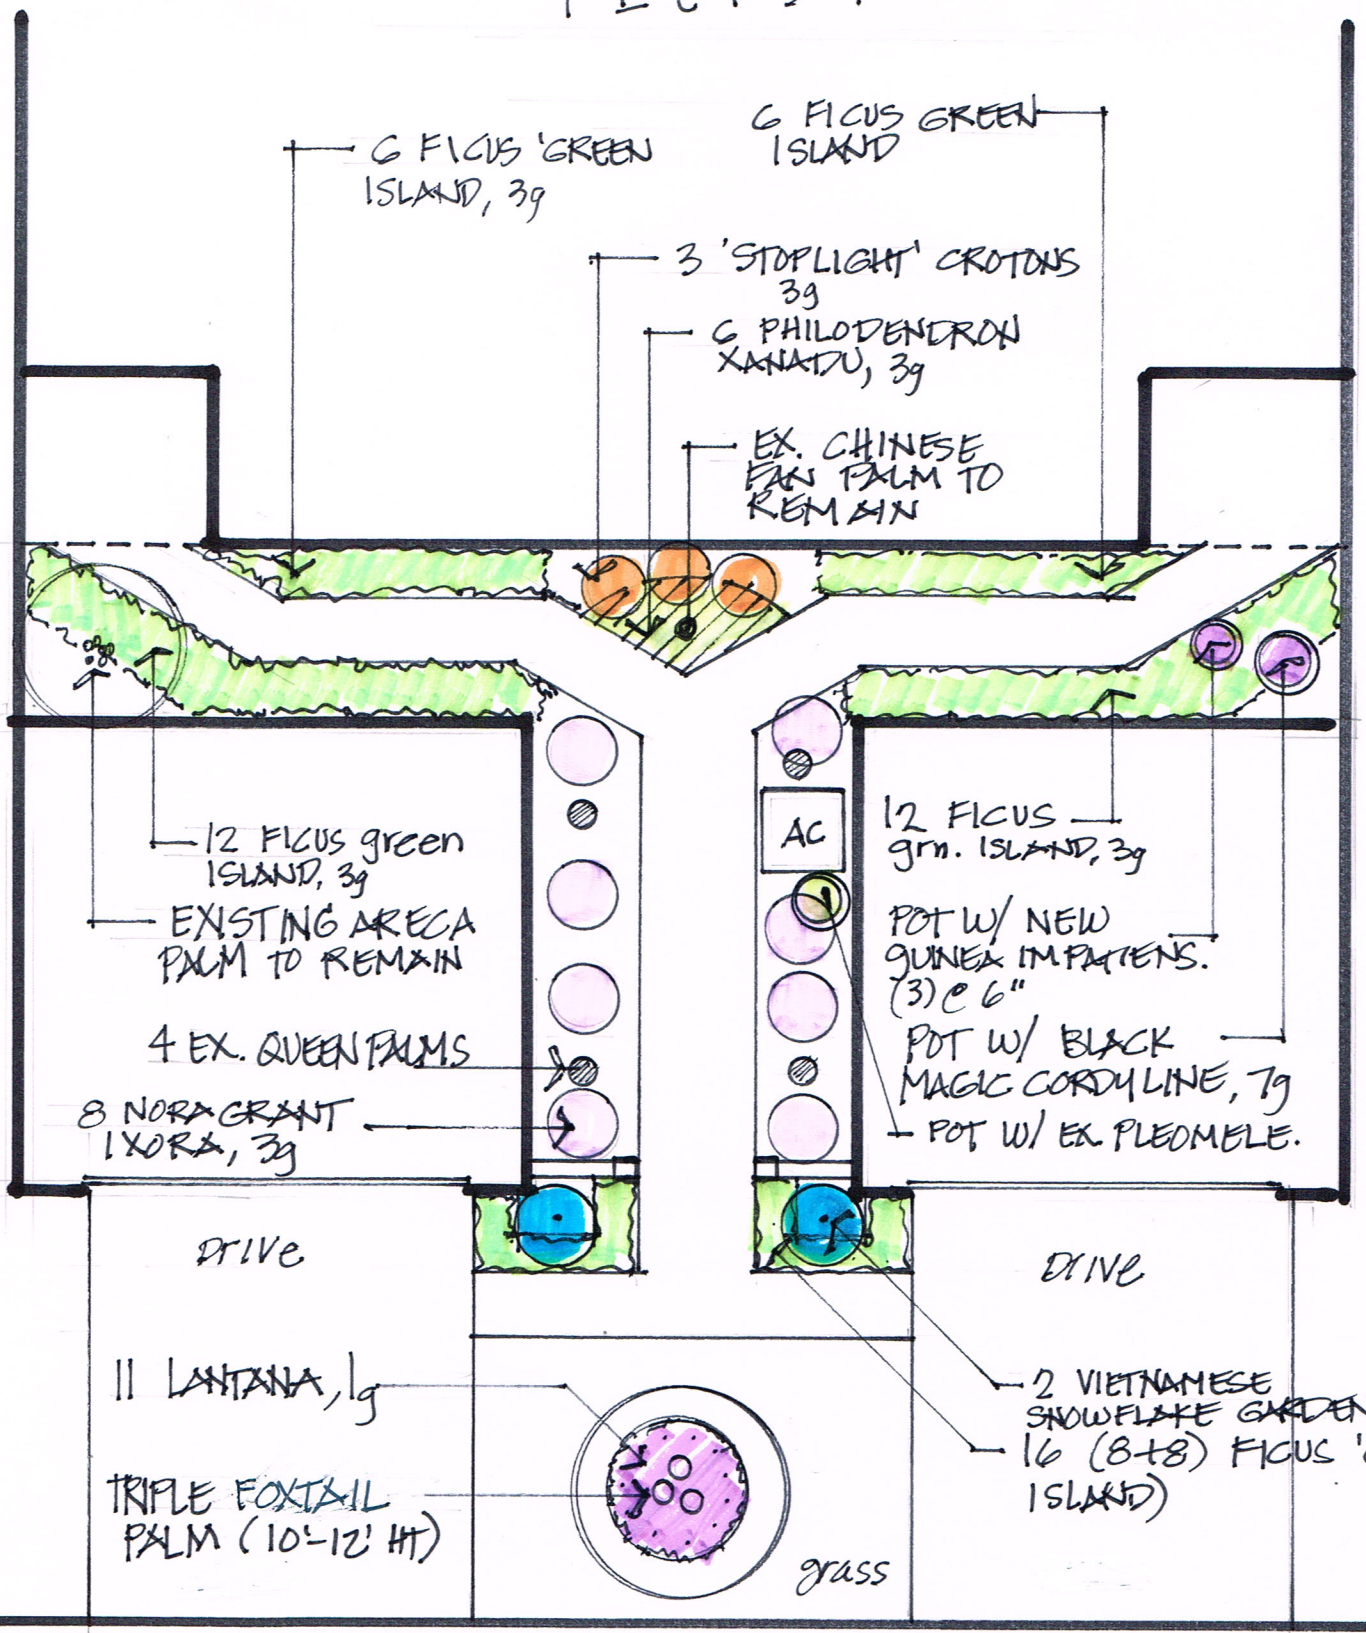 6 FICUS GREEN
ISLAND
6 FICUS 'GREEN
ISLAND, 3g
3 'STOPLIGHT' CROTONS
3g
6 PHILODENDRON
XANADU, 3g
EX. CHINESE
FAN PALM TO
REMAIN
12 FICUS green
ISLAND, 3g
EXISTING ARECA
PALM TO REMAIN
4 EX. QUEEN PALMS
8 NORA GRANT
IXORA, 3g
AC
12 FICUS
grn. ISLAND, 3g
POT W/ NEW
GUINEA IMPATIENS.
(3) @ 6"
POT W/ BLACK
MAGIC CORDYLINE, 7g
POT W/ EX. PLEOMELE.
Drive
Drive
11 LANTANA, 1g
TRIPLE FOXTAIL
PALM (10'-12' HT)
2 VIETNAMESE
SNOWFLAKE GARDEN
16 (8+8) FICUS '
ISLAND)
grass